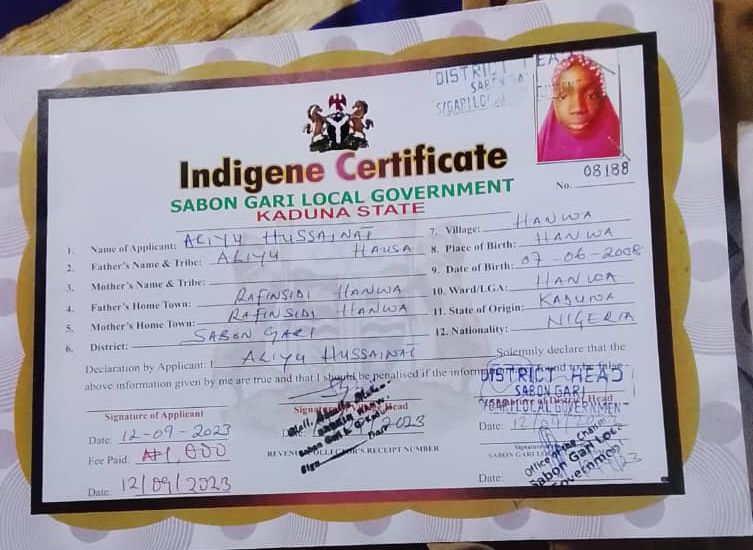 DISTRICT HEAD
SABON GA
S/GARI LOC
Indigene Certificate
08188
No.
SABON GARI LOCAL GOVERNMENT
KADUNA STATE
1. Name of Applicant: ALIYU HUSSAINAT
2. Father's Name & Tribe: ALIYU HAUSA
3. Mother's Name & Tribe:
4. Father's Home Town: RAFINSIDI HANWA
5. Mother's Home Town: RAFINSIDI HANWA
6. District: SABON GARI
7. Village: HANWA
8. Place of Birth: HANWA
9. Date of Birth: 07-06-2008
10. Ward/LGA: HANWA
11. State of Origin: KADUNA
12. Nationality: NIGERIA
Declaration by Applicant: I ALIYU HUSSAINAT Solemnly declare that the
above information given by me are true and that I should be penalised if the
Signature of Applicant
Date: 12-09-2023
Fee Paid. ₦1,000
Date. 12/09/2023
Head
2023
REVENUE COLLECTOR'S RECEIPT NUMBER
DISTRICT HEAD
SABON GARI
S/GARI LOCAL GOVERNMEN
Date: 12/09/
SABON GARI
Date:
Office of the Chairm
Sabon Gari Local
Government